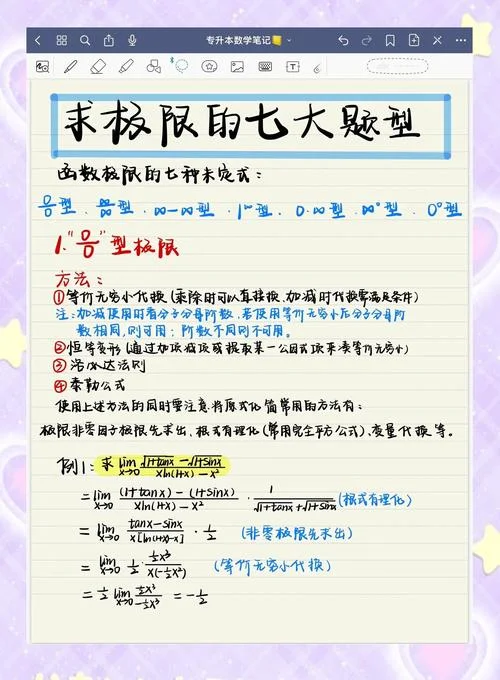 专升本数学笔记📒
求极限的七大题型
函数极限的七种未定式:
0/0型. ∞/∞型. ∞-∞型. 1^∞型. 0·∞型. ∞⁰型. 0⁰型
1."0/0"型极限
方法:
①等价无穷小代换(乘除时可以直接换,加减时代换需满足条件)
注:加减使用时看分子分母阶数,若使用等价无穷小后分子分母阶
数相同,则可用;阶数不同则不可用。
②恒等变形(通过加项减项或提取某一公因式项来凑等价无穷小)
③洛必达法则
④泰勒公式
使用上述方法的同时要注意将原式化简常用的方法有:
极限非零因子极限先求出、根式有理化(常用完全平方公式)、变量代换等。
例1:求 lim x→0 (√(1+tanx) - √(1+sinx))/(xln(1+x) - x²)
= lim x→0 ((1+tanx) - (1+sinx))/(xln(1+x) - x²) · 1/(√(1+tanx) + √(1+sinx)) (根式有理化)
= lim x→0 (tanx - sinx)/(x[ln(1+x) - x]) · 1/2 (非零极限先求出)
= lim x→0 1/2 · (1/2 x³)/(x(-1/2 x²)) (等价无穷小代换)
= 1/2 lim x→0 (1/2 x³)/(-1/2 x³) = -1/2